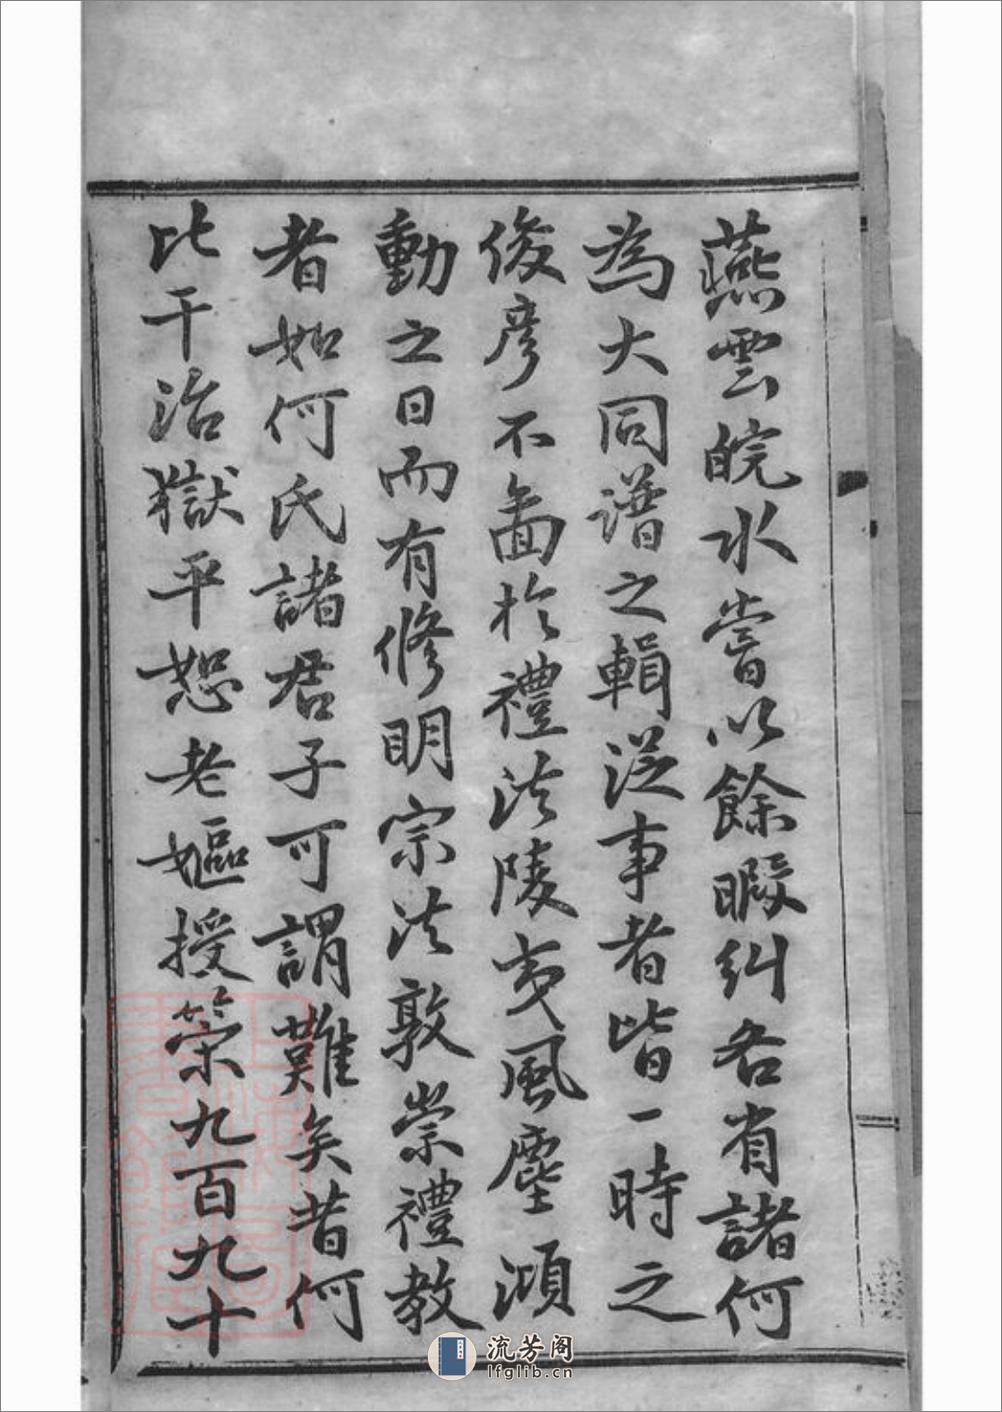 燕雲皖水嘗以餘暇糾各省諸何
為大同譜之輯從事者皆一時之
俊彦不圖於禮法陵夷風塵澒
動之日而有修明宗法敦崇禮教
者如何氏諸君子可謂難矣昔何
比干治獄平恕老嫗授策九百九十
流芳阁
lfglib.cn